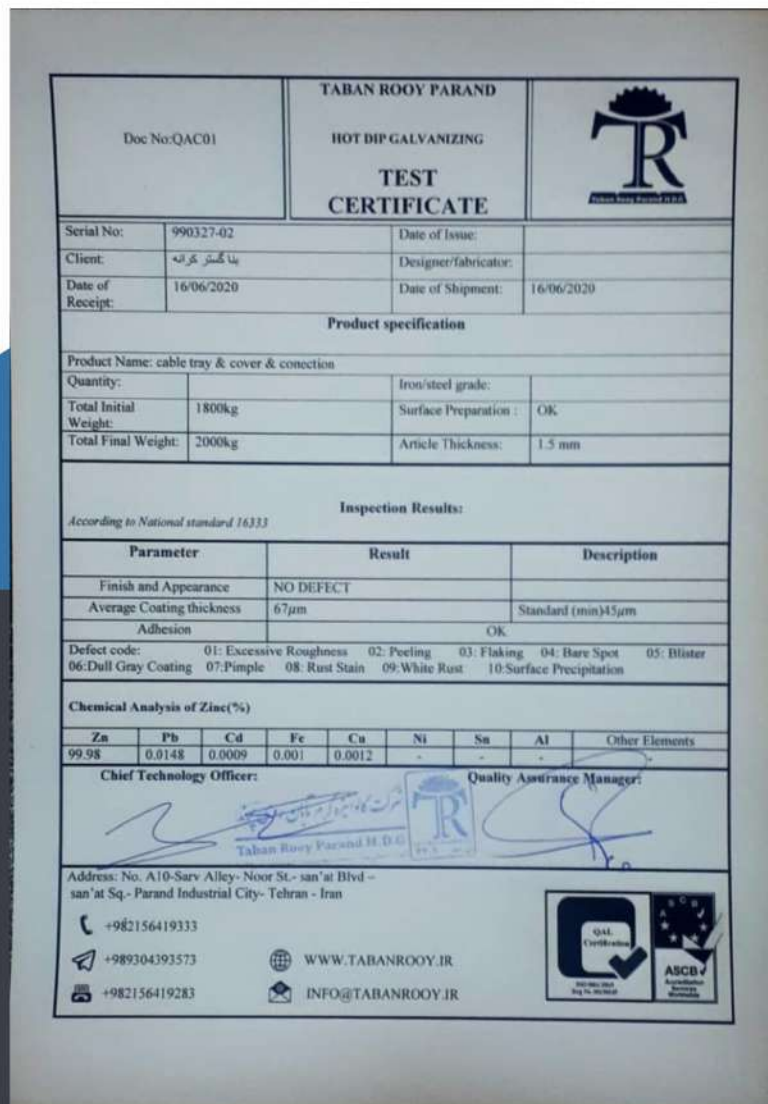 Doc No:QAC01
TABAN ROOY PARAND
HOT DIP GALVANIZING
TEST
CERTIFICATE
TR
Taban Rooy Parand H.D.G
Serial No: 990327-02 Date of Issue:
Client: بنا گستر کرانه Designer/fabricator:
Date of Receipt: 16/06/2020 Date of Shipment: 16/06/2020
Product specification
Product Name: cable tray & cover & conection
Quantity: Iron/steel grade:
Total Initial Weight: 1800kg Surface Preparation : OK
Total Final Weight: 2000kg Article Thickness: 1.5 mm
Inspection Results:
According to National standard 16333
Parameter Result Description
Finish and Appearance NO DEFECT
Average Coating thickness 67μm Standard (min)45μm
Adhesion OK
Defect code: 01: Excessive Roughness 02: Peeling 03: Flaking 04: Bare Spot 05: Blister
06:Dull Gray Coating 07:Pimple 08: Rust Stain 09:White Rust 10:Surface Precipitation
Chemical Analysis of Zinc(%)
Zn Pb Cd Fe Cu Ni Sn Al Other Elements
99.98 0.0148 0.0009 0.001 0.0012 - - -
Chief Technology Officer: Quality Assurance Manager:
Taban Rooy Parand H.D.G
TR
Address: No. A10-Sarv Alley- Noor St.- san'at Blvd –
san'at Sq.- Parand Industrial City- Tehran - Iran
+982156419333
+989304393573 WWW.TABANROOY.IR
+982156419283 INFO@TABANROOY.IR
QAL
Certification
ASCB
ASCB
Accreditation
Services
Worldwide